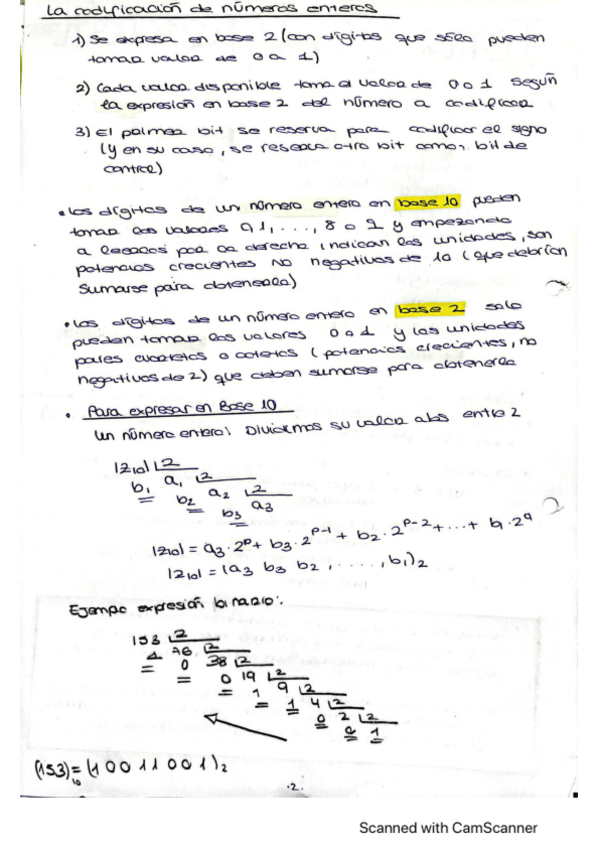 La codificación de números enteros
1) Se expresa en base 2 (con dígitos que sólo pueden
tomar valor de 0 a 1)
2) Cada valor disponible toma el valor de 0 o 1 según
la expresión en base 2 del número a codificar
3) El primer bit se reserva para codificar el signo
(y en su caso, se reserva otro bit como, bit de
control)
• Los dígitos de un número entero en base 10 pueden
tomar los valores 0,1,...,8 o 9 y empezando
a leerlos por la derecha indican las unidades, son
potencias crecientes NO negativas de 10 (que debrían
sumarse para obtenerla)
• Los dígitos de un número entero en base 2 solo
pueden tomar los valores 0 o 1 y las unidades
pares cuartetos o octetos (potencias crecientes, no
negativas de 2) que deben sumarse para obtenerla
• Para expresar en Base 10
Un número entero: Dividimos su valor abs entre 2
|z10| 2
b1 a1 2
b2 a2 2
b3 a3
|z10| = a3·2^p + b3·2^p-1 + b2·2^p-2 + ... + b1·2^q
|z10| = (a3 b3 b2, ....., b1)2
Ejemplo expresión binario:
153 2
1 76 2
0 38 2
0 19 2
1 9 2
1 4 2
0 2 2
0 1
(153)10 = (10011001)2
.2.
Scanned with CamScanner